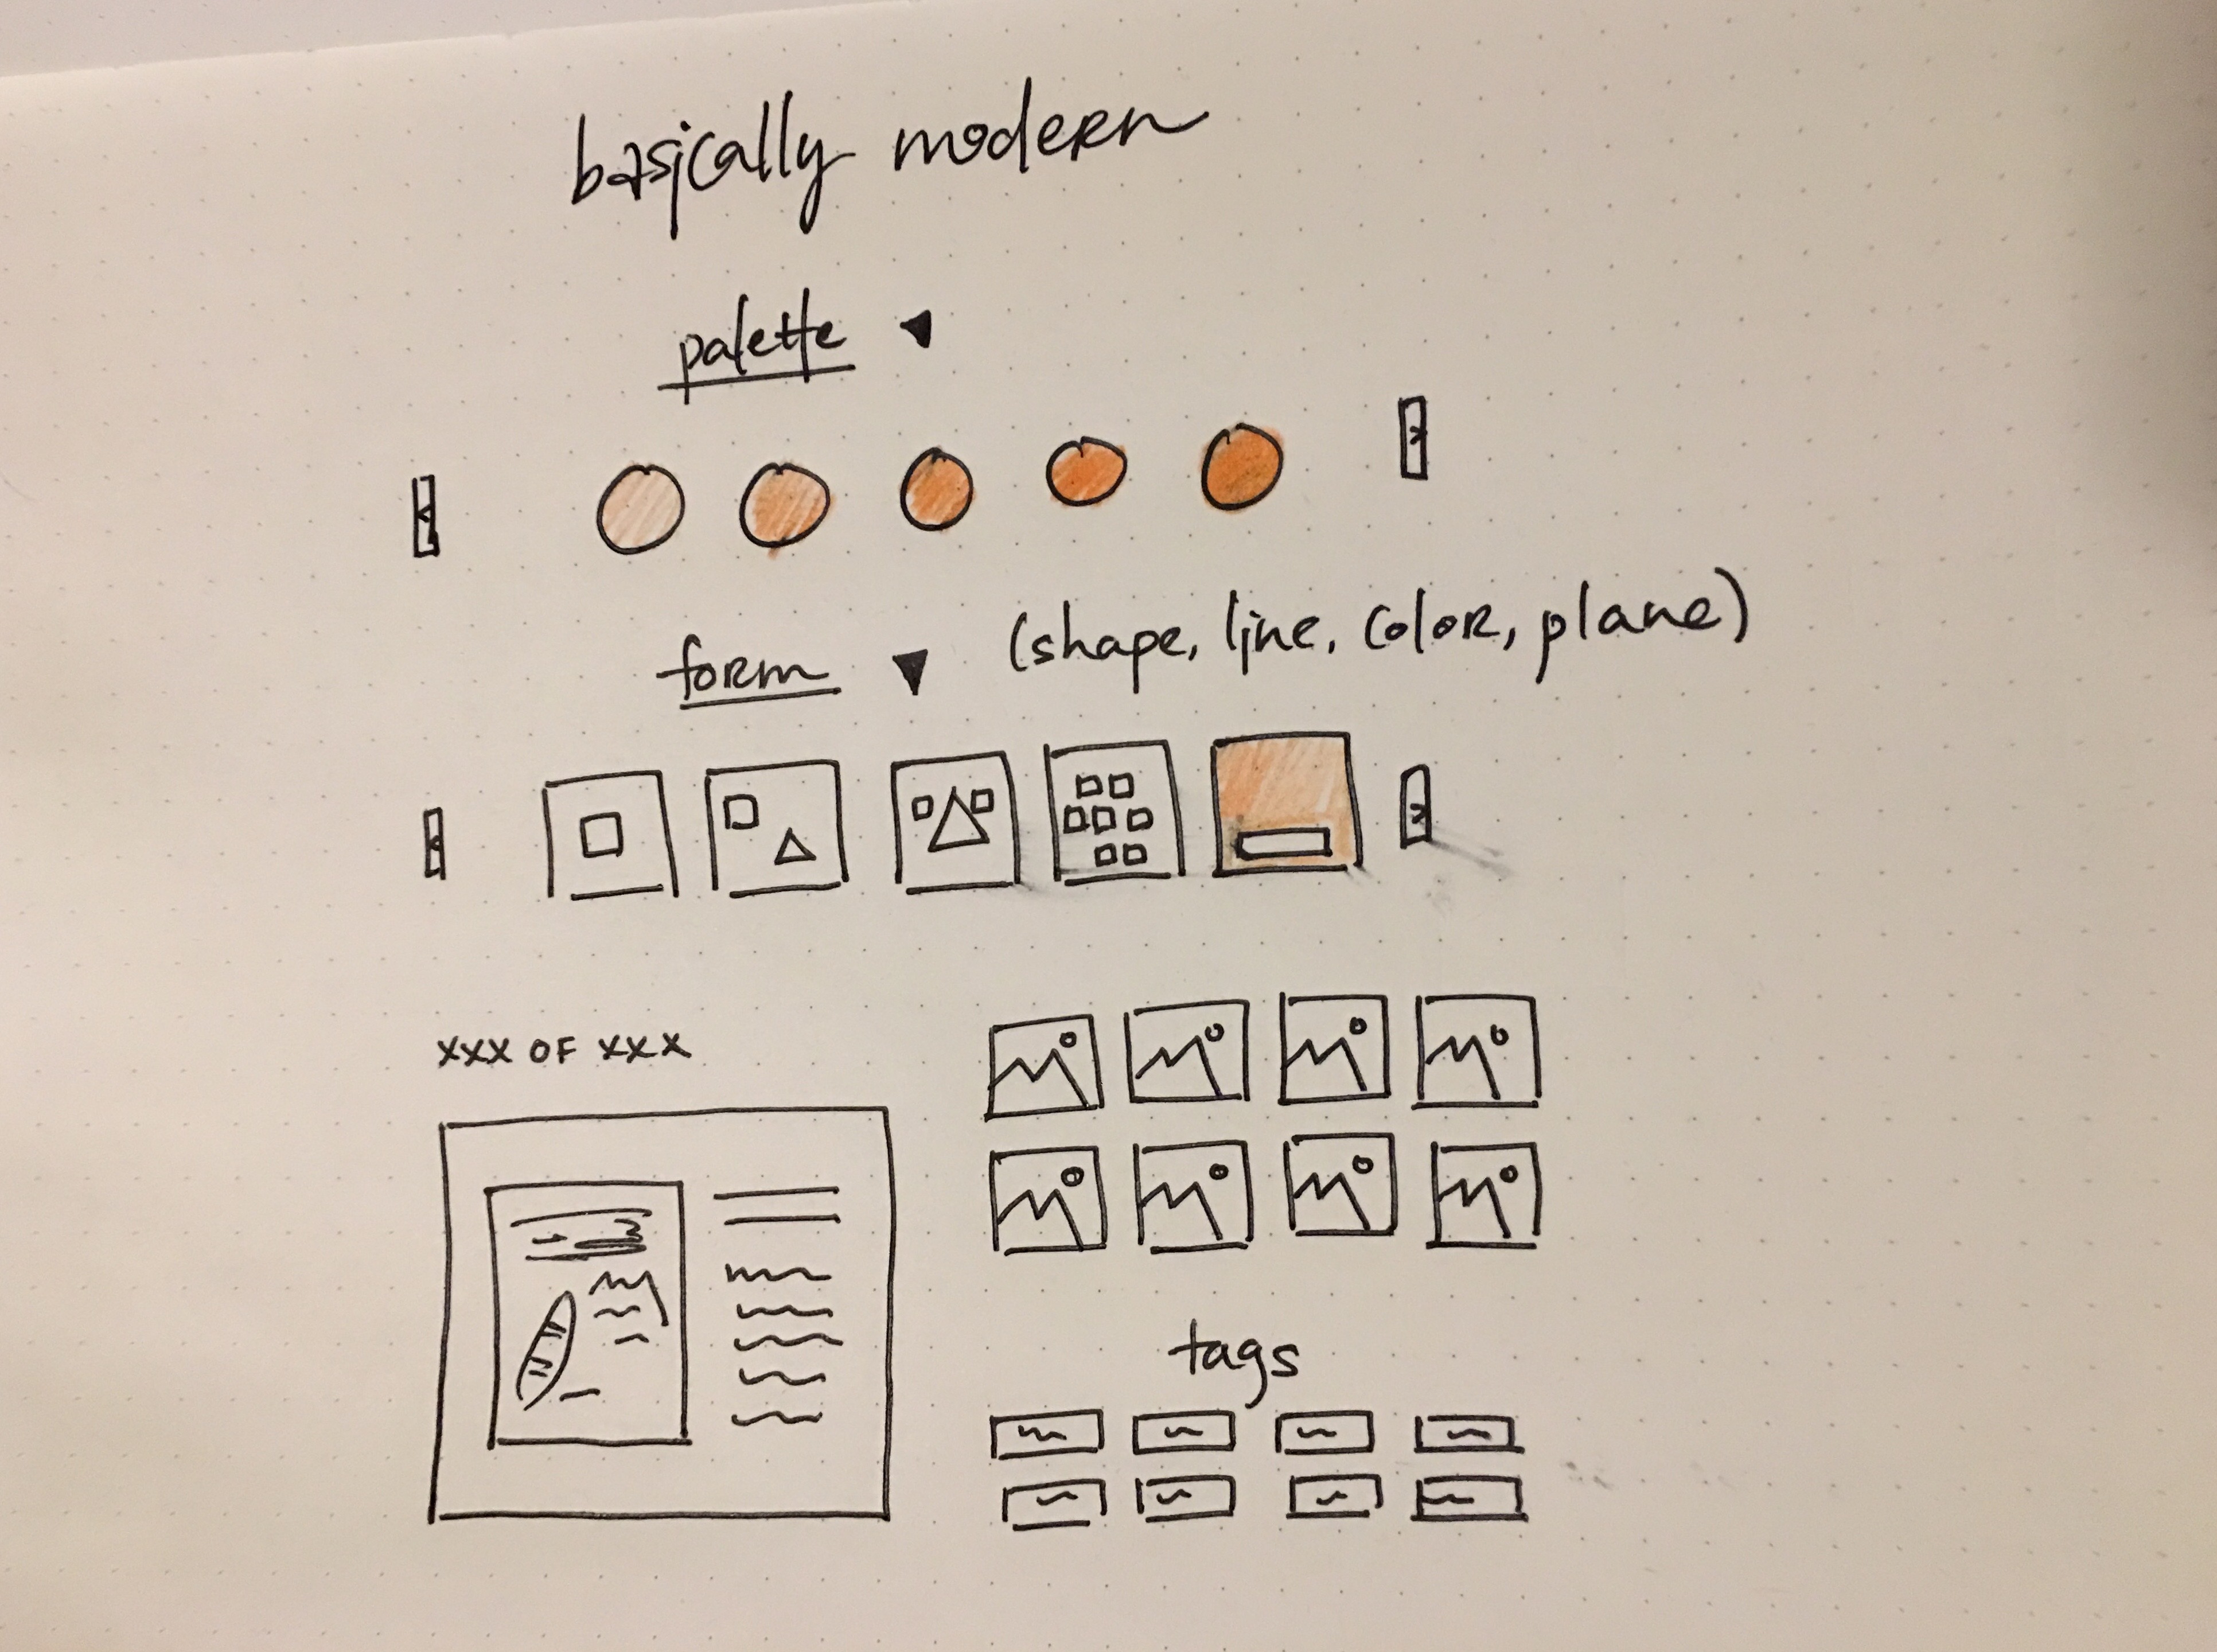 basically modern
palette
form (shape, line, color, plane)
xxx OF xxx
tags